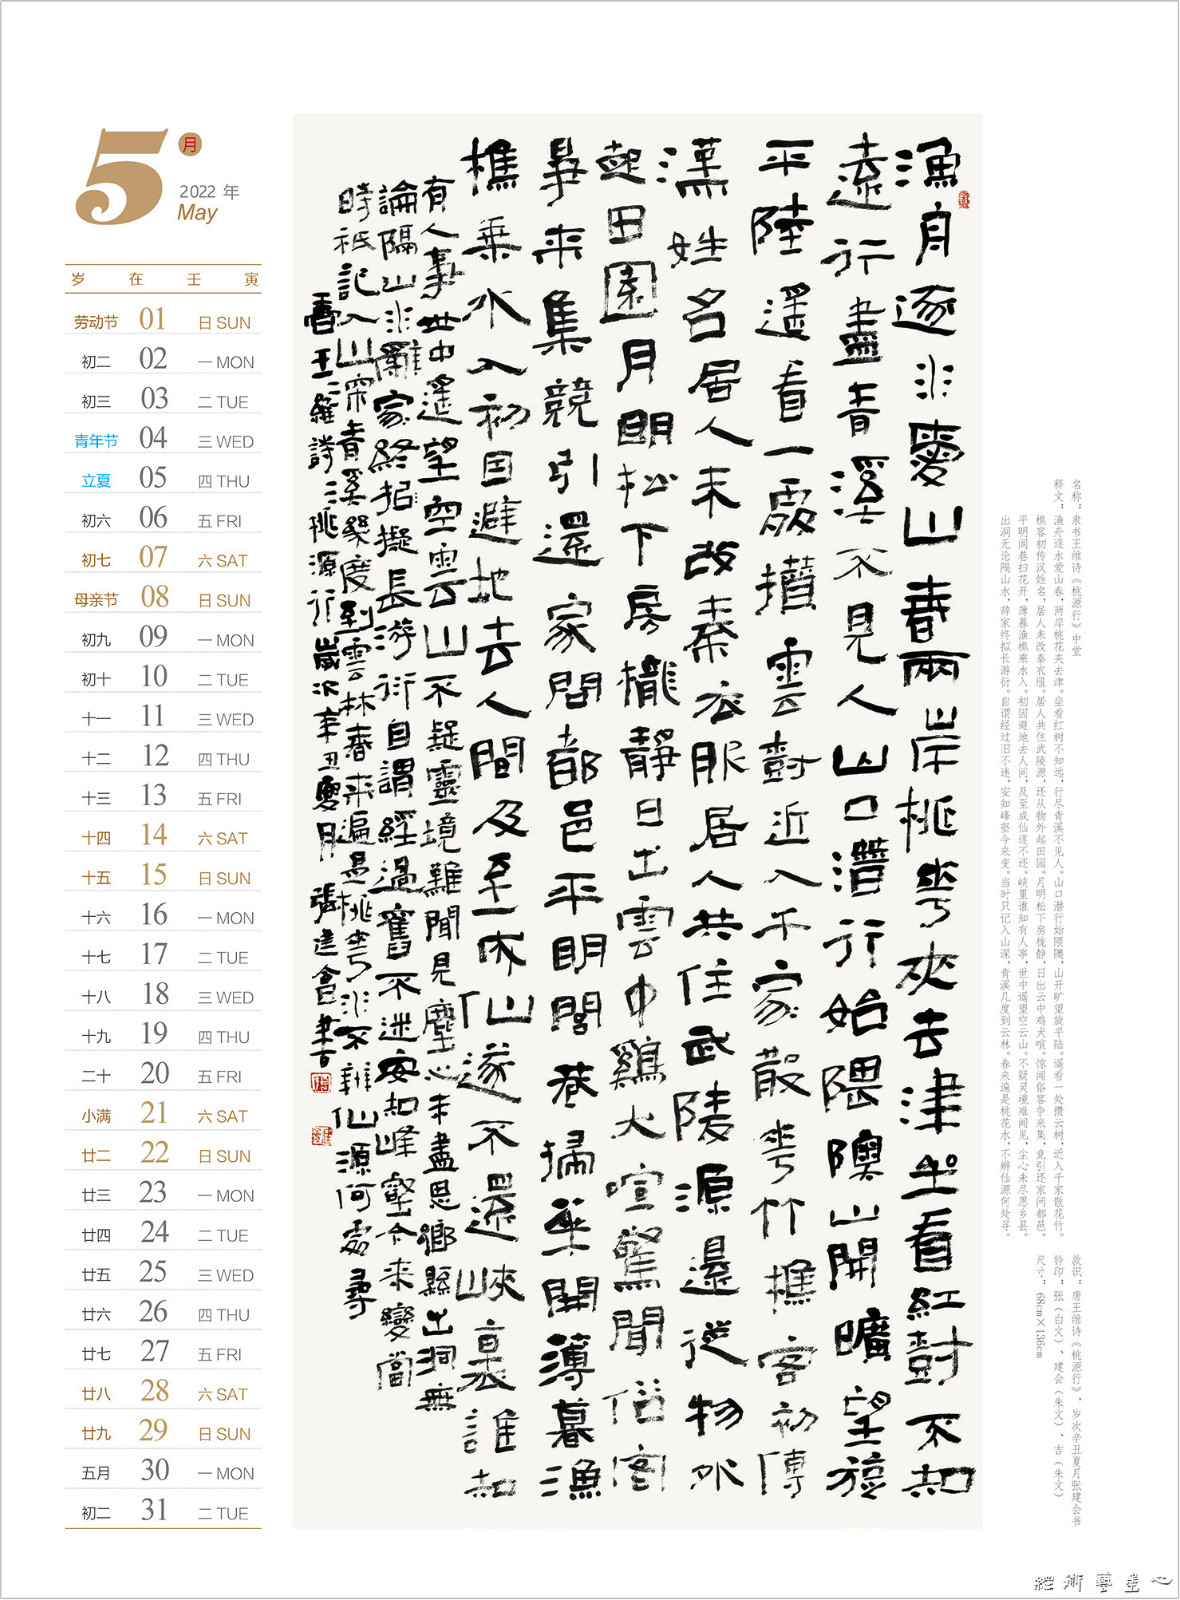 5月
2022 年
May
岁 在 壬 寅
劳动节 01 日 SUN
初二 02 一 MON
初三 03 二 TUE
青年节 04 三 WED
立夏 05 四 THU
初六 06 五 FRI
初七 07 六 SAT
母亲节 08 日 SUN
初九 09 一 MON
初十 10 二 TUE
十一 11 三 WED
十二 12 四 THU
十三 13 五 FRI
十四 14 六 SAT
十五 15 日 SUN
十六 16 一 MON
十七 17 二 TUE
十八 18 三 WED
十九 19 四 THU
二十 20 五 FRI
小满 21 六 SAT
廿二 22 日 SUN
廿三 23 一 MON
廿四 24 二 TUE
廿五 25 三 WED
廿六 26 四 THU
廿七 27 五 FRI
廿八 28 六 SAT
廿九 29 日 SUN
五月 30 一 MON
初二 31 二 TUE
漁舟逐水愛山春兩岸桃華夾去津坐看紅樹不知
遠行盡青溪不見人山口潛行始隈隩山開曠望旋
平陸遥看一處攢雲樹近入千家散華竹樵客初傳
漢姓名居人未改秦衣服居人共住武陵源還從物外
起田園月明松下房櫳靜日出雲中鷄犬喧驚聞俗客
爭來集競引還家問都邑平明閭巷掃華開薄暮漁
樵乘水入初因避地去人間及至成仙遂不還峽裏誰知
有人事世中遥望空雲山不疑靈境難聞見塵心未盡思鄉縣出洞無
論隔山水辭家終擬長游衍自謂經過舊不迷安知峰壑今來變當
時衹記入山深青溪幾度到雲林春來遍是桃華水不辨仙源何處尋
唐王維詩桃源行歲次辛丑夏月張建會書
名称：隶书王维诗《桃源行》中堂
释文：渔舟逐水爱山春，两岸桃花夹去津。坐看红树不知远，行尽青溪不见人。山口潜行始隈隩，山开旷望旋平陆。遥看一处攒云树，近入千家散花竹。
樵客初传汉姓名，居人未改秦衣服。居人共住武陵源，还从物外起田园。月明松下房栊静，日出云中鸡犬喧。惊闻俗客争来集，竞引还家问都邑。
平明闾巷扫花开，薄暮渔樵乘水入。初因避地去人间，及至成仙遂不还。峡里谁知有人事，世中遥望空云山。不疑灵境难闻见，尘心未尽思乡县。
出洞无论隔山水，辞家终拟长游衍。自谓经过旧不迷，安知峰壑今来变。当时只记入山深，青溪几度到云林。春来遍是桃花水，不辨仙源何处寻。
款识：唐王维诗《桃源行》，岁次辛丑夏月张建会书
钤印：张（白文）、建会（朱文）、吉（朱文）
尺寸：68cm×136cm